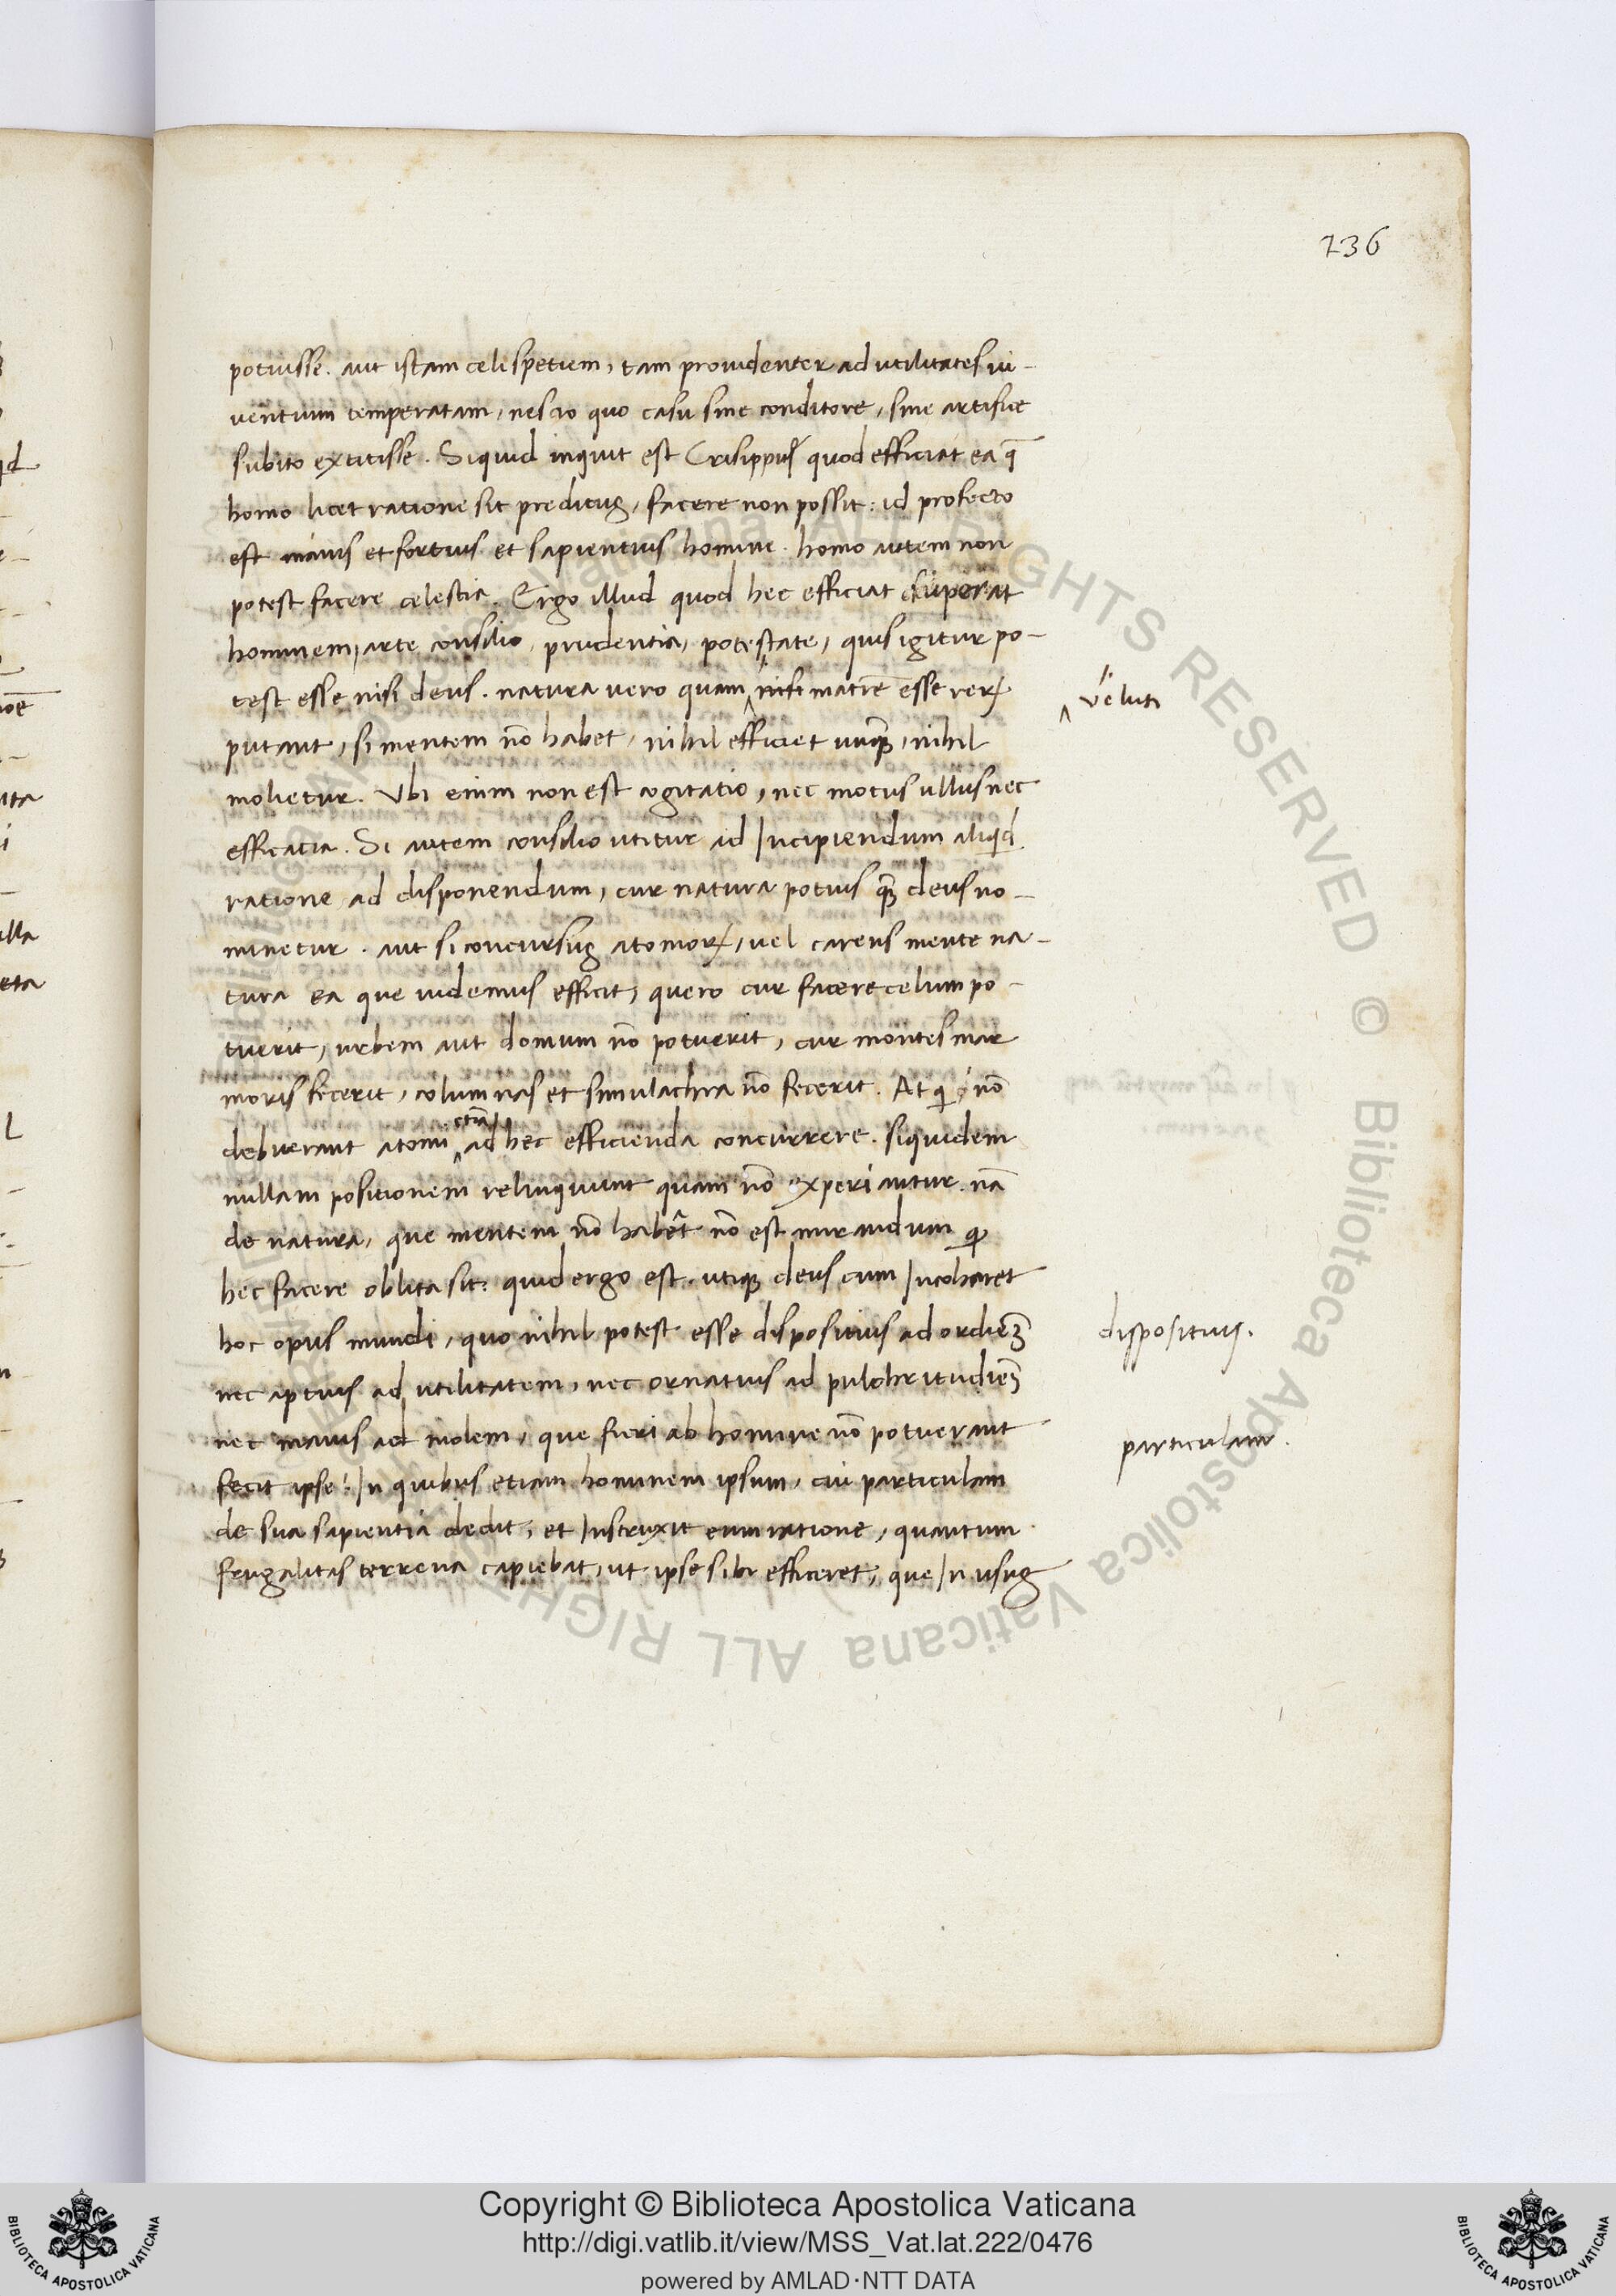 236
potuisse. aut istam celi spetiem, tam prouidenter ad utilitates ui-
uentium temperatam, nescio quo casu sine conditore, sine artifice
subito extitisse. Siquid inquit est Crisippus quod efficiat ea q̄
homo licet ratione sit preditus, facere non possit: id profecto
est maius et fortius et sapientius homine. homo autem non
potest facere celestia. Ergo illud quod hec efficiat superat
hominem, arte consilio, prudentia, potestate, quis igitur po-
test esse nisi deus. natura uero quam ‸ matrē esse rerꝝ
‸ veluti
putant, si mentem nō habet, nihil efficiet unꝙ̄, nihil
molietur. Vbi enim non est cogitatio, nec motus ullus nec
efficatia. Si autem consilio utitur ad Incipiendum aliqͥd
ratione ad disponendum, cur natura potius ꝙ̄ deus no-
minetur. aut si concursus atomorꝝ, uel carens mente na-
tura ea que uidemus efficit, quero cur facere celum po-
tuerit, urbem aut domum nō potuerit, cur montes mar
moris fecerit, columnas et simulachra nō fecerit. At qͥ nō
debuerant atomi ‸ ad hec efficienda concurrere. siquidem
etiā
nullam positionem relinquunt quam nō experiantur. nā
de natura, que mentem nō habēt nō est mirandum ꝙ
hec facere oblita sit: quid ergo est. utiqꝫ deus cum Incoharet
hoc opus mundi, quo nihil potest esse dispositius ad ordiēꝫ
dispositius.
nec aptius ad utilitatem, nec ornatius ad pulchritudiēꝫ
nec maius ad molem, que fieri ab homine nō potuerant
particulam.
fecit ipse: In quibus etiam hominem ipsum, cui particulam
de sua sapientia dedit, et Instruxit eum ratione, quantum
frugalitas terrena capiebat, ut ipse sibi efficeret, que In usus
Copyright © Biblioteca Apostolica Vaticana
http://digi.vatlib.it/view/MSS_Vat.lat.222/0476
powered by AMLAD·NTT DATA
BIBLIOTECA APOSTOLICA VATICANA
BIBLIOTECA APOSTOLICA VATICANA